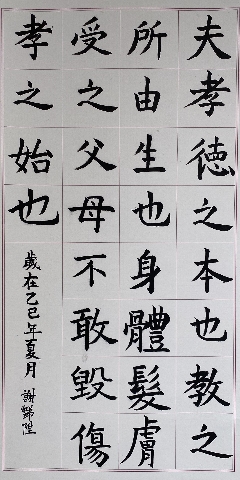 夫孝德之本也教之
所由生也身體髮膚
受之父母不敢毀傷
孝之始也
歲在乙巳年夏月 謝